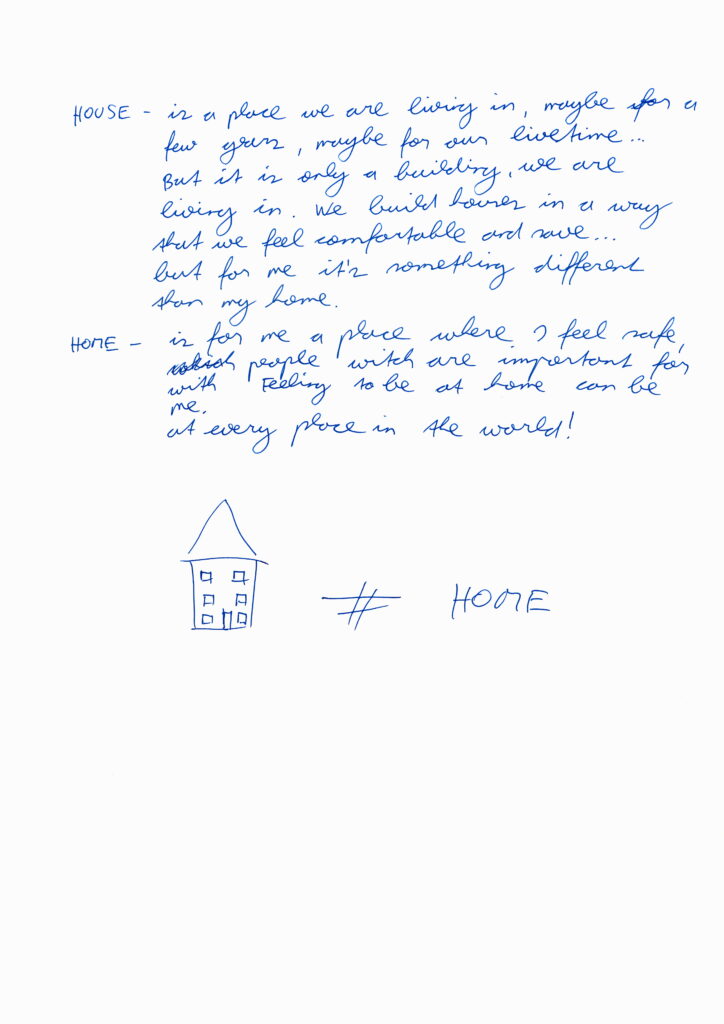 HOUSE - is a place we are living in, maybe for a
few years, maybe for our livetime...
But it is only a building, we are
living in. We build houses in a way
that we feel comfortable and save...
but for me it's something different
than my home.
HOME - is for me a place where I feel safe,
people witch are important for
with Feeling to be at home can be
me.
at every place in the world!
≠ HOME